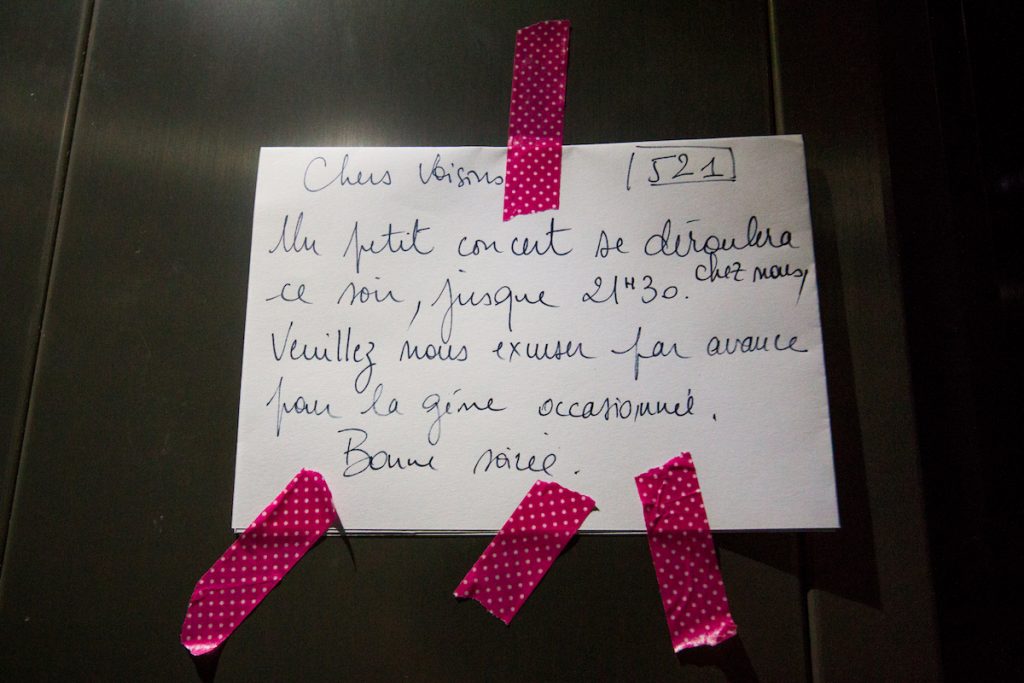 Chers Voisins 521
Un petit concert se déroulera
ce soir, jusque 21H30. chez nous,
Veuillez nous excuser par avance
pour la gêne occasionnée.
Bonne soirée.